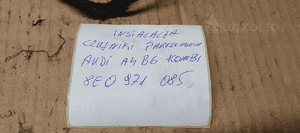 INSTALACJA
CZUJNIKI PARKOWANIA
AUDI A4 B6 KOMBI
8E0 971 085